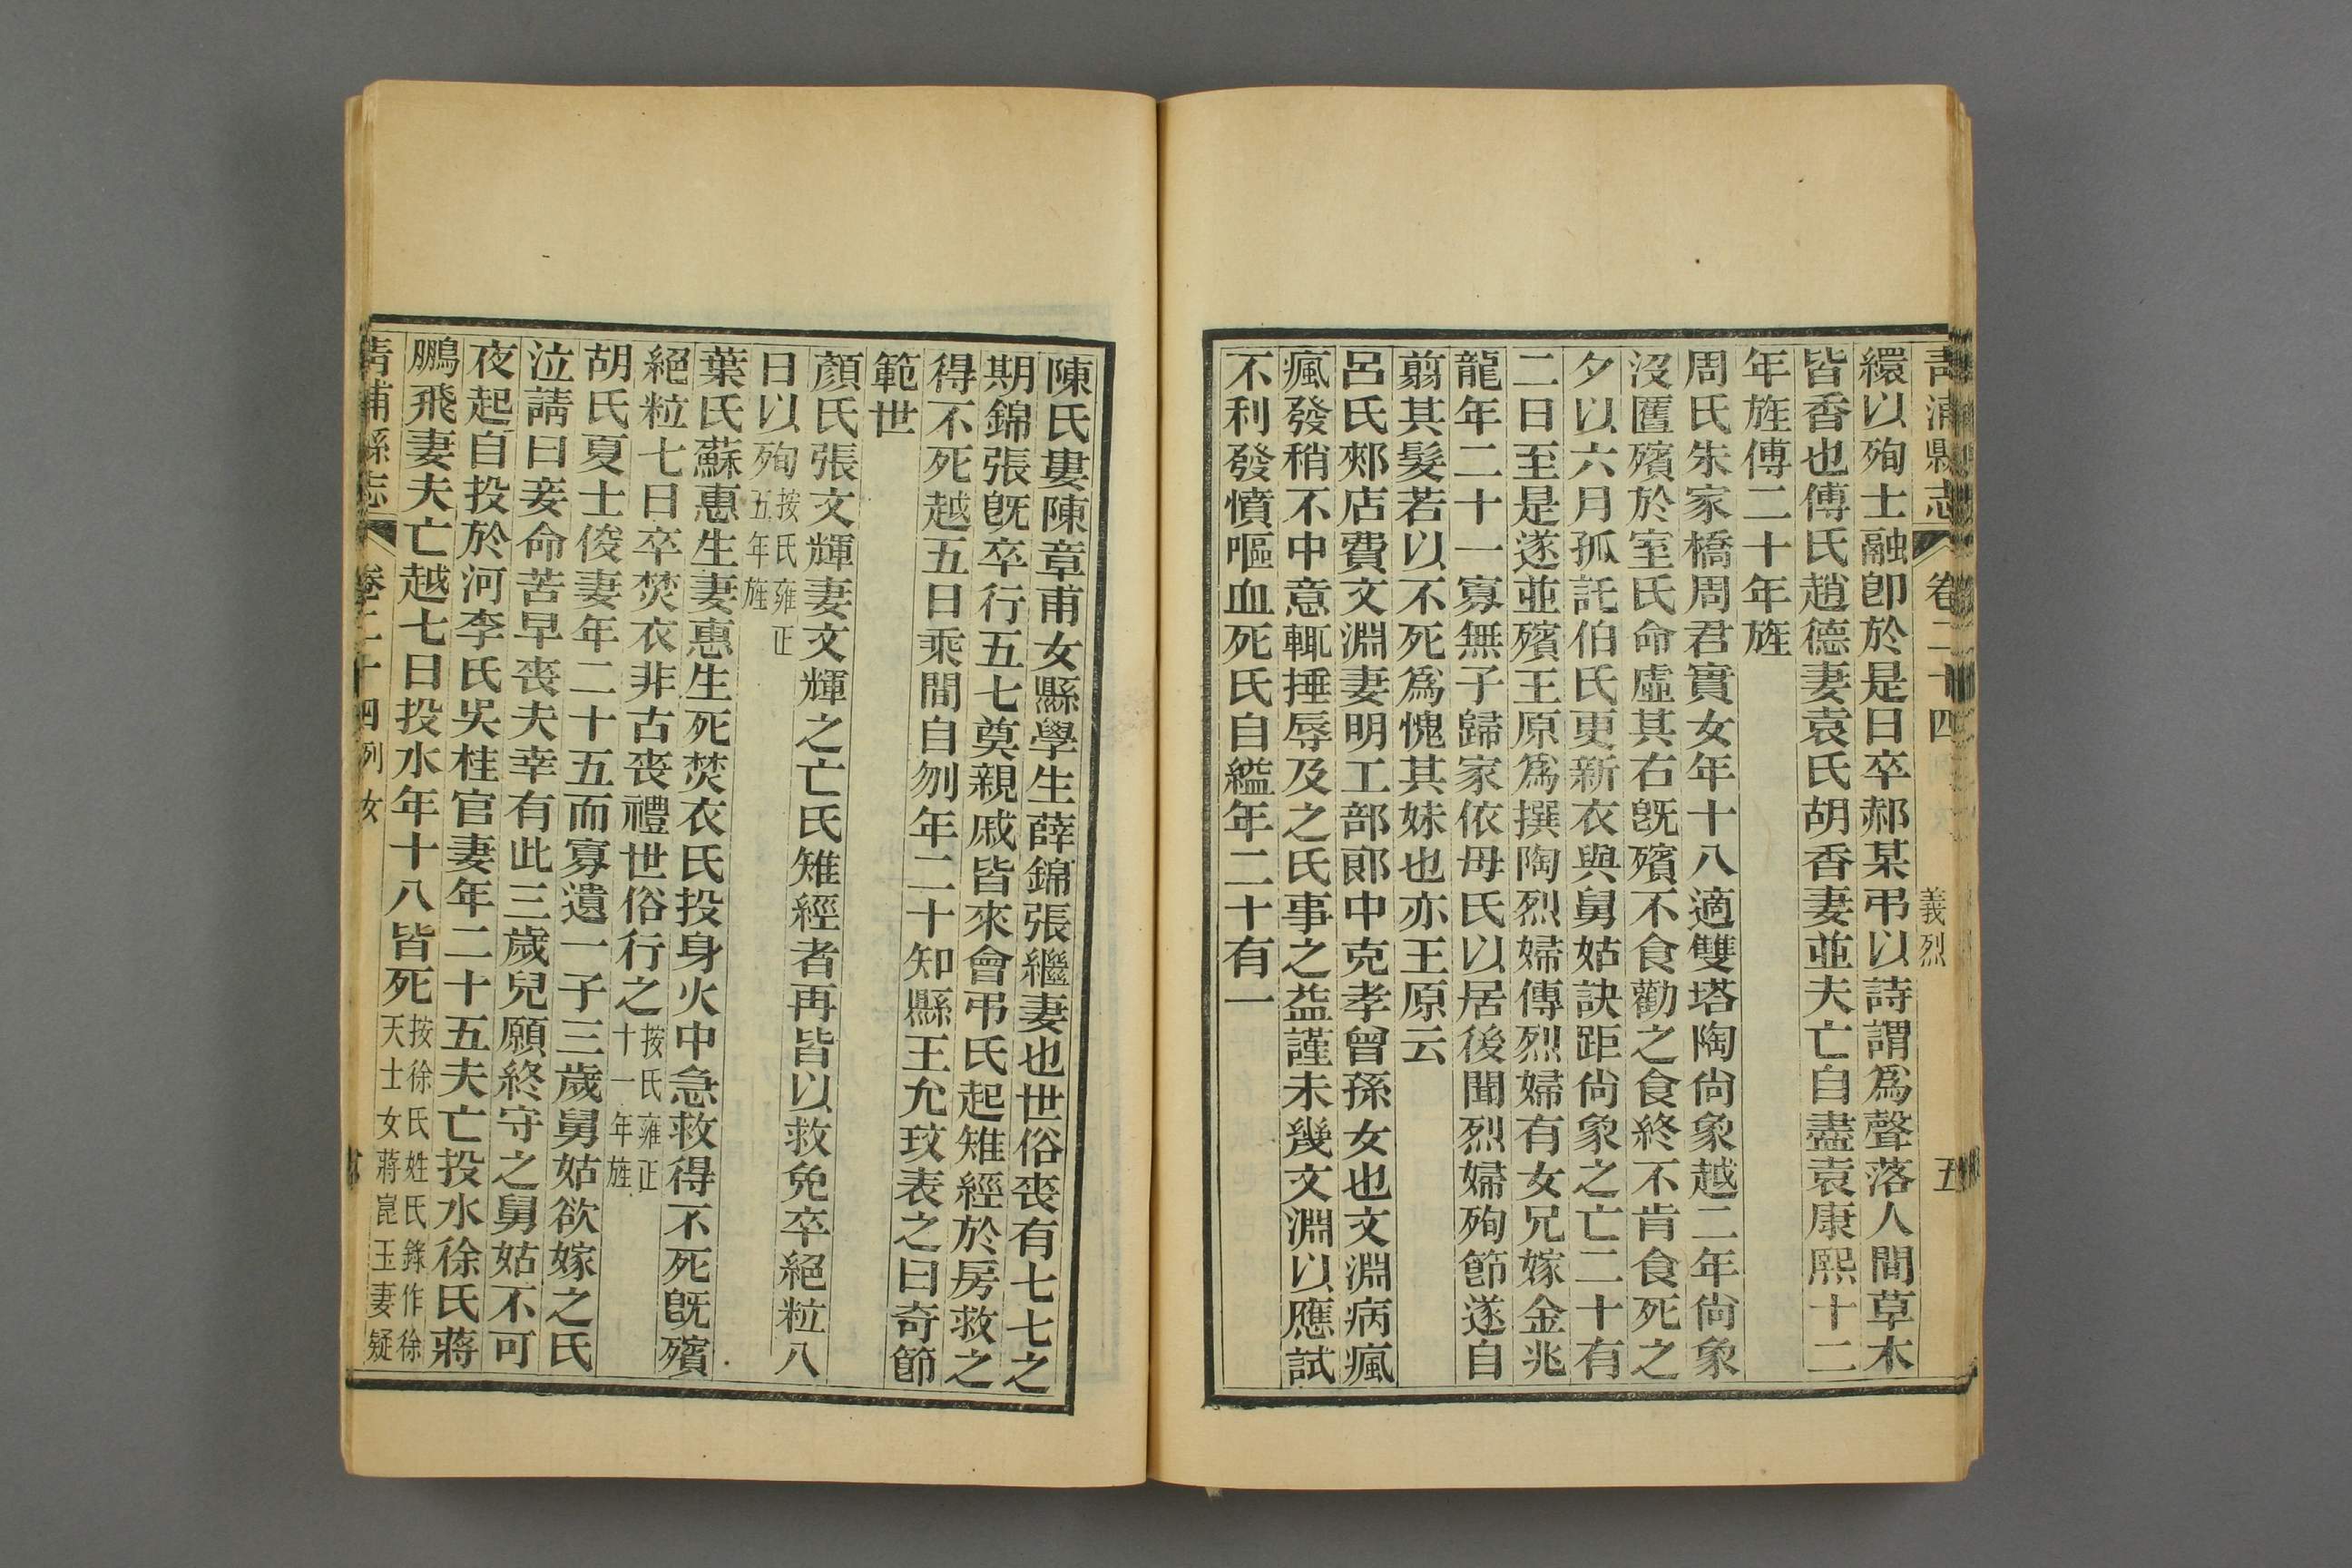 青浦縣志 卷二十四 義烈 五
繯以殉士融卽於是日卒郝某弔以詩謂爲聲落人間草木
皆香也傅氏趙德妻袁氏胡香妻並夫亡自盡袁康熙十二
年旌傅二十年旌
周氏朱家橋周君實女年十八適雙塔陶尙象越二年尙象
沒匶殯於室氏命虛其右旣殯不食勸之食終不肯食死之
夕以六月孤託伯氏更新衣與舅姑訣距尙象之亡二十有
二日至是遂並殯王原爲撰陶烈婦傳烈婦有女兄嫁金兆
龍年二十一寡無子歸家依母氏以居後聞烈婦殉節遂自
翦其髮若以不死爲愧其妹也亦王原云
呂氏郟店費文淵妻明工部郎中克孝曾孫女也文淵病瘋
瘋發稍不中意輒捶辱及之氏事之益謹未幾文淵以應試
不利發憤嘔血死氏自縊年二十有一
陳氏婁陳章甫女縣學生薛錦張繼妻也世俗喪有七七之
期錦張旣卒行五七奠親戚皆來會弔氏起雉經於房救之
得不死越五日乘間自刎年二十知縣王允玟表之曰奇節
範世
顏氏張文輝妻文輝之亡氏雉經者再皆以救免卒絕粒八
日以殉按氏雍正五年旌
葉氏蘇惠生妻惠生死焚衣氏投身火中急救得不死旣殯
絕粒七日卒焚衣非古喪禮世俗行之按氏雍正十一年旌
胡氏夏士俊妻年二十五而寡遺一子三歲舅姑欲嫁之氏
泣請曰妾命苦早喪夫幸有此三歲兒願終守之舅姑不可
夜起自投於河李氏吳桂官妻年二十五夫亡投水徐氏蔣
鵬飛妻夫亡越七日投水年十八皆死按徐氏姓氏錄作徐天士女蔣崑玉妻疑
青浦縣志 卷二十四 列女